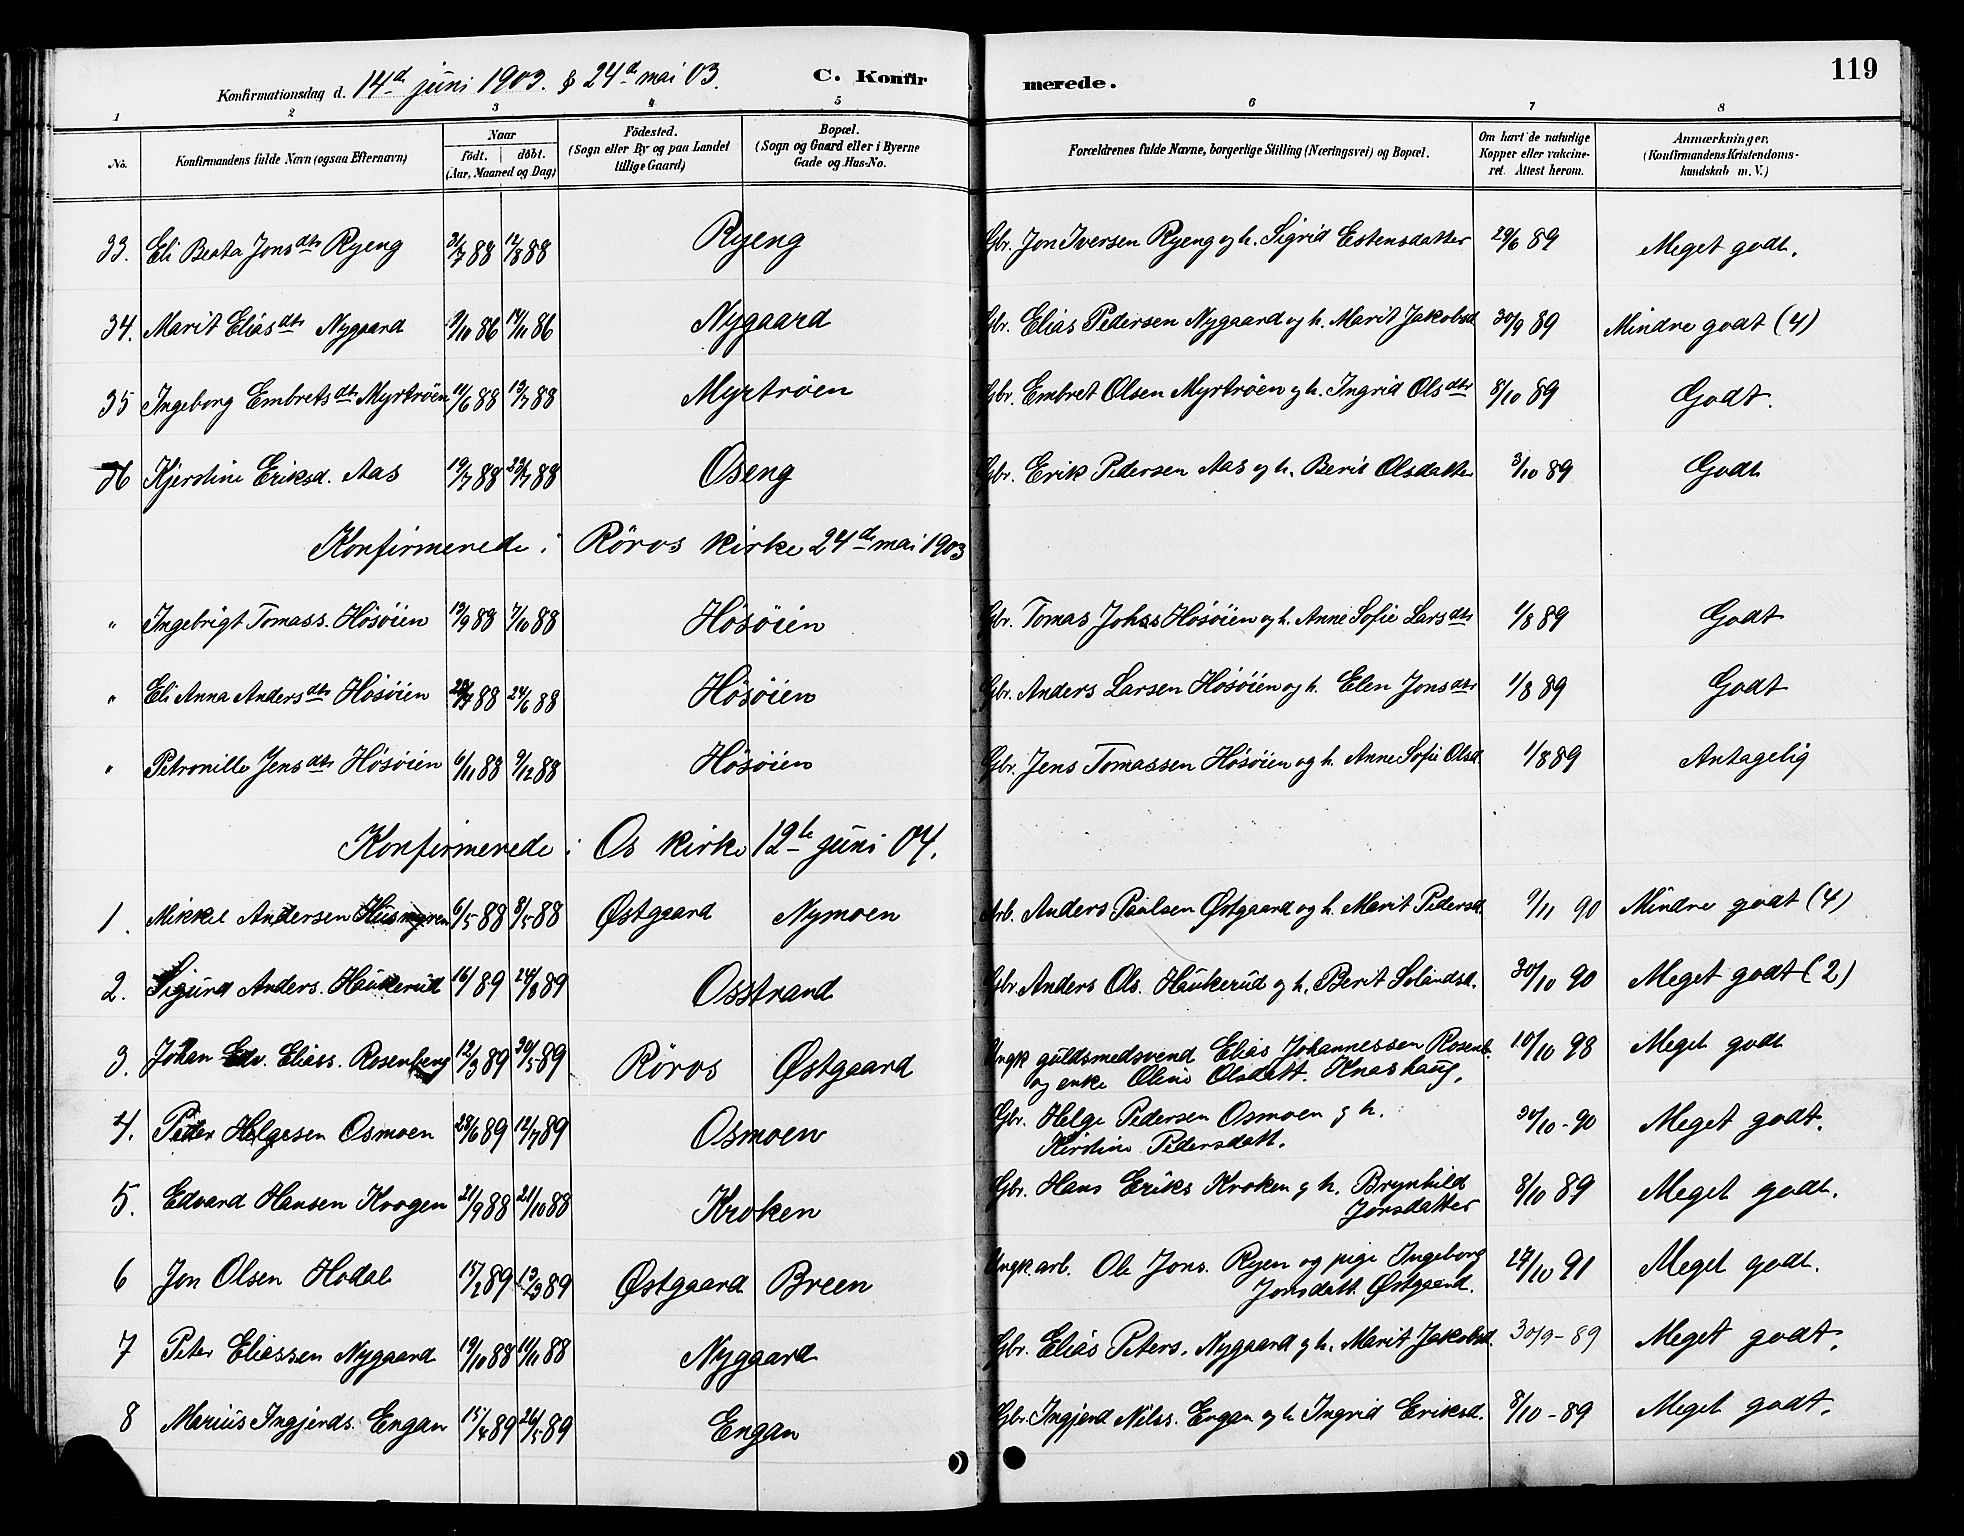 119
Konfirmationsdag d. 14d juni 1903. & 24d mai 03. C. Konfirmerede.
1 2 3 4 5 6 7 8
No. Konfirmandens fulde Navn (ogsaa Efternavn) Naar födt. döbt. (Aar, Maaned og Dag) Födested. (Sogn eller By og paa Landet tillige Gaard) Bopæl. (Sogn og Gaard eller i Byerne Gade og Hus-No. Forældrenes fulde Navne, borgerlige Stilling (Næringsvei) og Bopæl. Om havt de naturlige Kopper eller vakcineret. Attest herom. Anmærkninger, (Konfirmandens Kristendomskundskab m. V.)
33. Eli Beata Jonsdtr Ryeng 31/7 88 12/8 88 Ryeng Gbr. Jon Iversen Ryeng og h. Sigrid Estensdatter 29/6 89 Meget godt.
34. Marit Eliasdtr Nygaard 9/10 86 14/11 86 Nygaard Gbr. Elias Pedersen Nygaard og h. Marit Jakobsd 30/9 89 Mindre godt (4)
35 Ingeborg Embretsdtr Myrtröen 11/6 88 13/7 88 Myrtröen Gbr. Embret Olsen Myrtröen g h. Ingrid Olsdtr 8/10 89 Godt.
36 Kjerstine Eriksd. Aas 19/7 88 29/7 88 Oseng Gbr. Erik Pedersen Aas og h. Berit Olsdatter 3/10 89 Godt
Konfirmerede i Röros kirke 24de mai 1903
" Ingebrigt Tomass. Hösöien 19/9 88 7/10 88 Hösöien Gbr. Tomas Johss Hösöien og h. Anne Sofie Larsdtr 1/8 89 Godt
" Eli Anna Andersdtr Hösöien 88 24/6 88 Hösöien Gbr. Anders Larsen Hösöien og h. Elen Jonsdtr 1/8 89 Godt
" Petronille Jensdtr Hösöien 6/11 88 9/12 88 Hösöien Gbr. Jens Tomassen Hösöien og h. Anne Sofie Olsd. 1/8 89 Antagelig
Konfirmerede i Os kirke 12te juni 04.
1. Mikkel Andersen Husmyren 6/5 88 8/5 88 Østgaard Nymoen Arb. Anders Paulsen Østgaard og h. Marit Pedersd. 9/11 90 Mindre godt (4)
2. Sigurd Anders. Haukerud 89 24/8 89 Osstrand Gbr. Anders Ols. Haukerud og h. Berit 30/10 90 Meget godt (2)
3. Johan Edv. Eliass. Rosenberg 12/3 89 30/5 89 Röros Østgaard Ungk guldsmedsvend Elias Johannessen Rosenb.
og enke Oline Olsdatt. Knashaug. 10/10 98 Meget godt
4. Peder Helgesen Osmoen 28/6 89 12/7 89 Osmoen Gbr. Helge Pedersen Osmoen g h.
Kirstine Pedersdatt. 30/10 - 90 Meget godt.
5. Edvard Hansen Krogen 21/9 88 21/10 88 Kroken Gbr. Hans Eriks Kroken g h. Brynhild
Jonsdatter 8/10 89 Meget godt.
6 Jon Olsen Hodal 15/2 89 13/3 89 Østgaard Breen Ungk. arb. Ole Jons. Ryen og pige Ingeborg
Jonsdatt. Østgaard. 27/10 91 Meget godt.
7 Peter Eliassen Nygaard 19/10 88 11/11 88 Nygaard Gbr. Elias Peters. Nygaard g h. Marit Jakobsd. 30/9 - 89 Meget godt.
8 Marius Ingjerds. Engan 15/4 89 26/5 89 Engan Gbr. Ingjerd Nilss. Engan og h Ingrid Eriksd. 8/10 - 89 Meget godt.